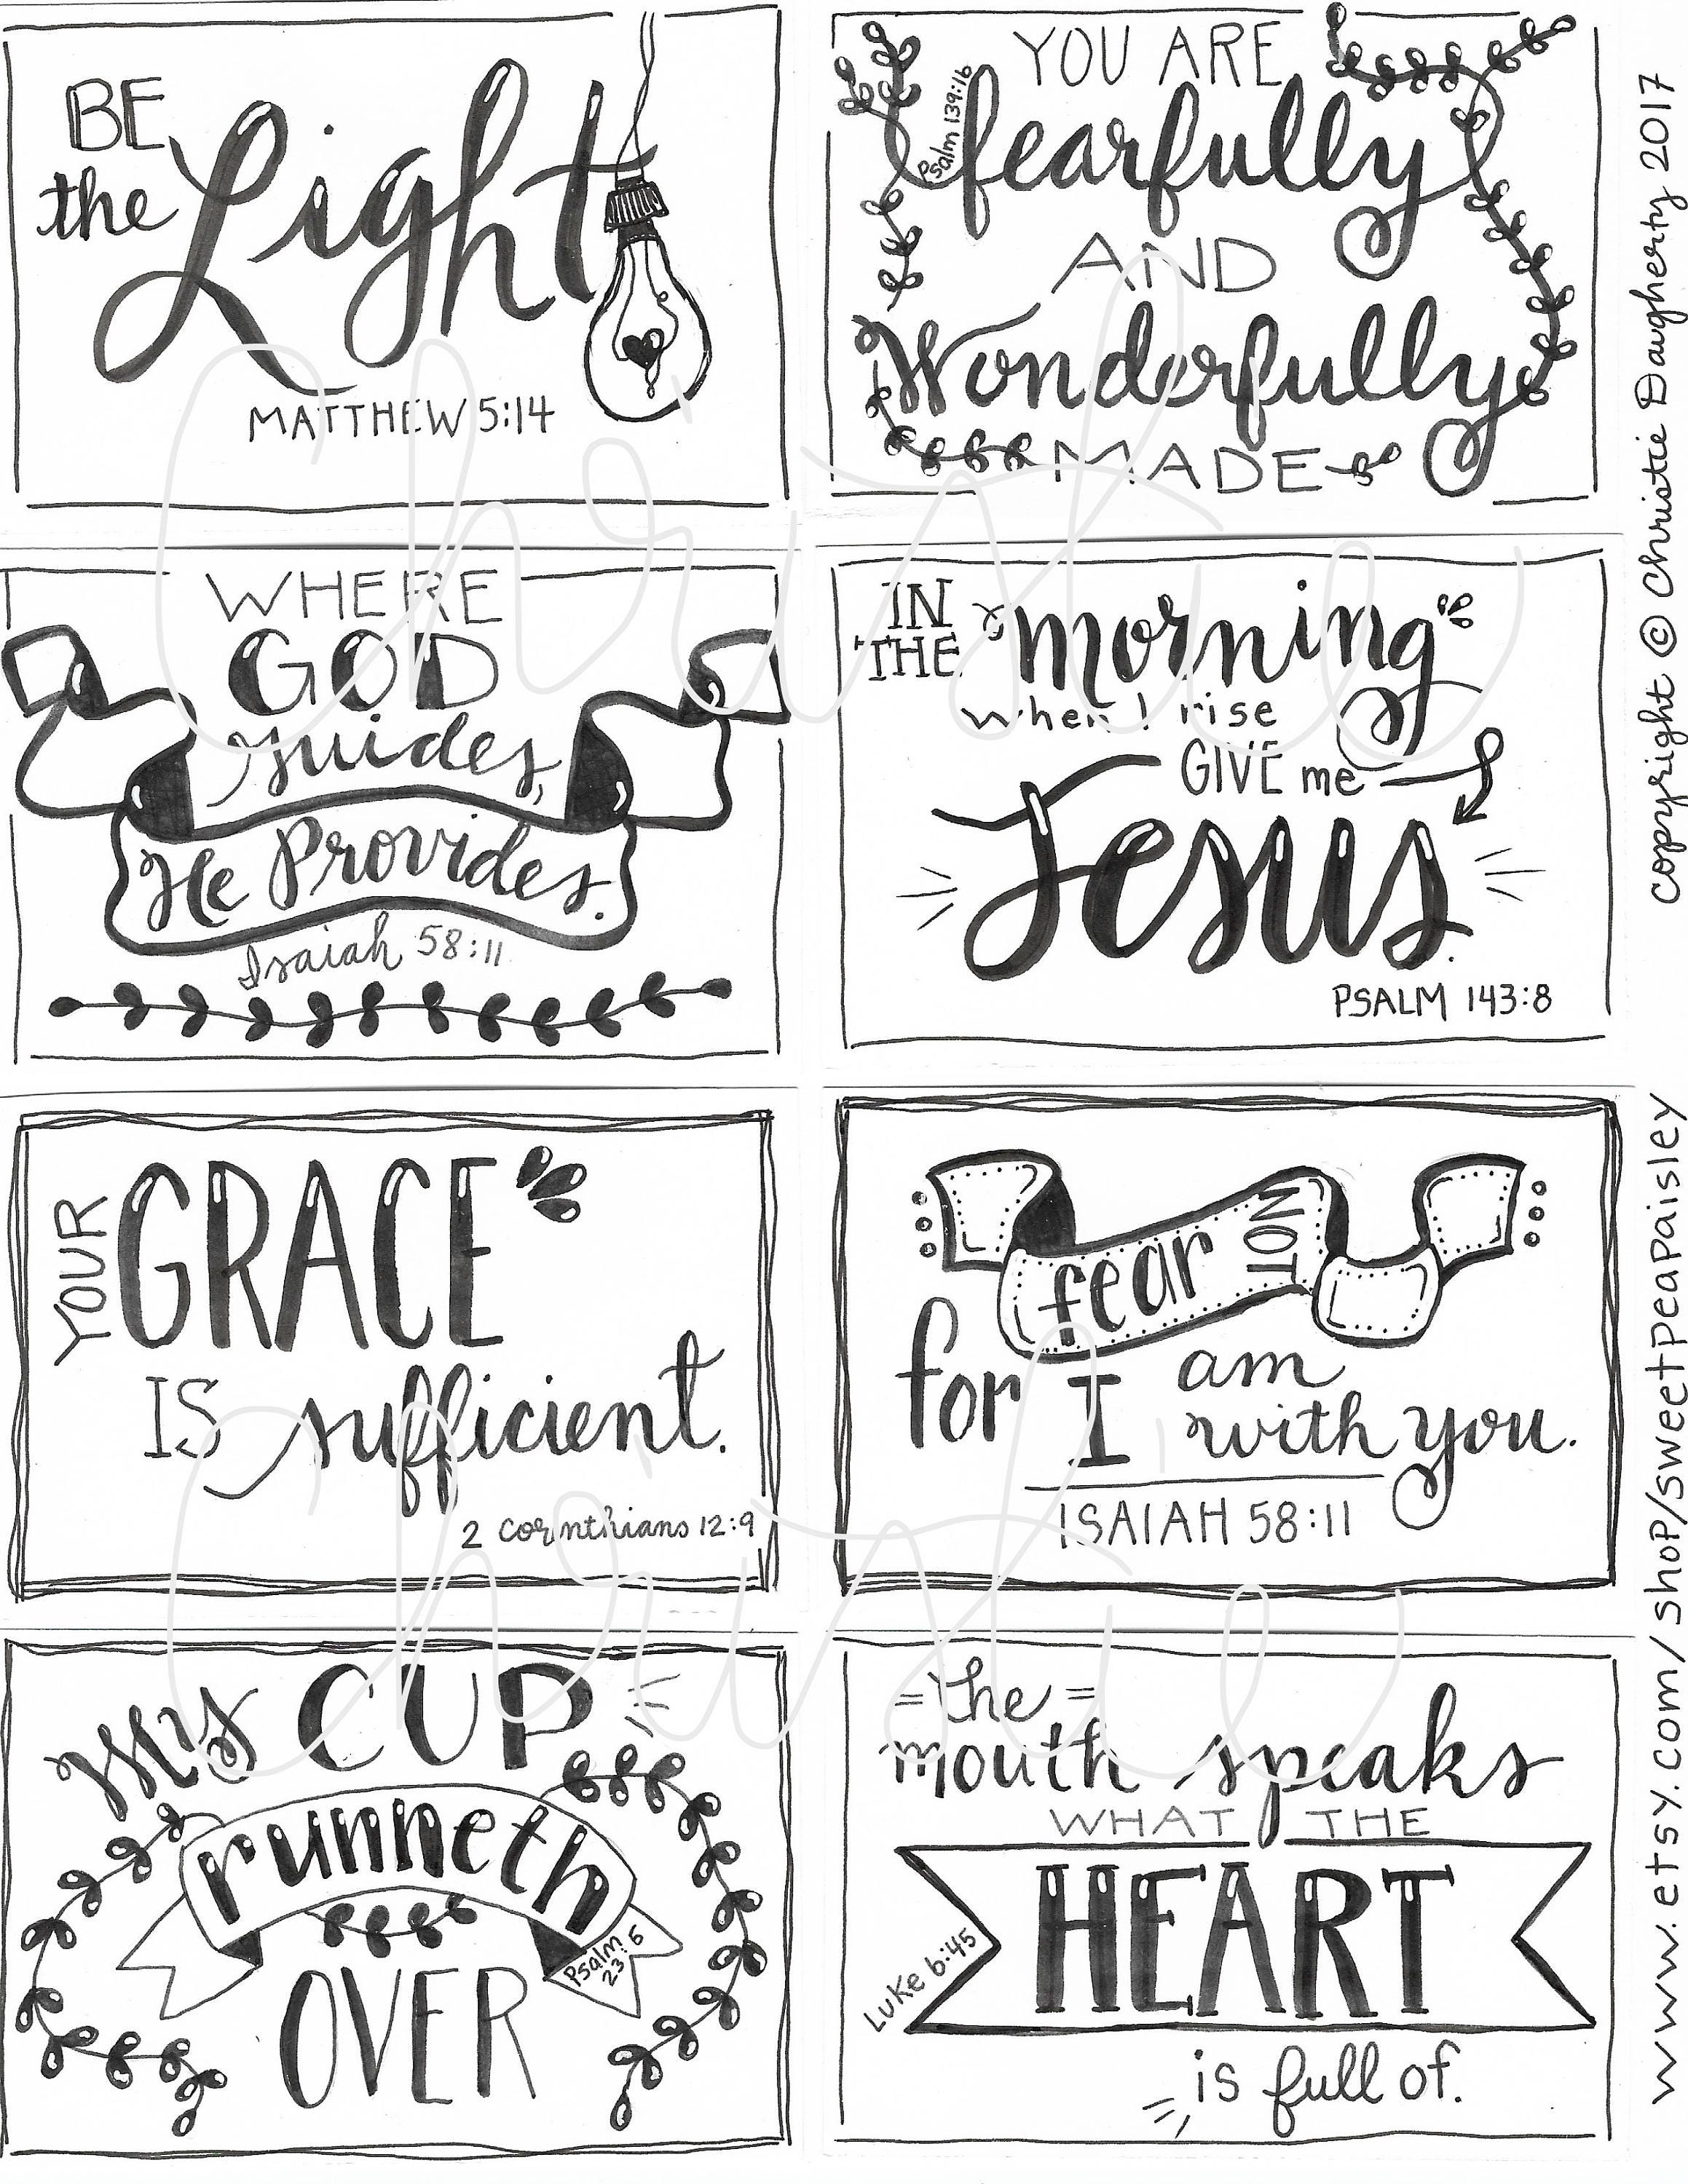 BE
the Light
MATTHEW 5:14
YOU ARE
Psalm 139:16
fearfully
AND
Wonderfully
MADE
WHERE
GOD
guides,
He Provides.
Isaiah 58:11
IN THE morning
when I rise
GIVE me
Jesus.
PSALM 143:8
YOUR GRACE
IS sufficient.
2 corinthians 12:9
fear NOT
for I am
with you.
ISAIAH 58:11
My CUP
runneth
Psalm
23:5
OVER
the
mouth speaks
WHAT THE
HEART
Luke 6:45
is full of.
copyright © Christie Daugherty 2017
www.etsy.com/shop/sweetpeapaisley
Christie
Christie